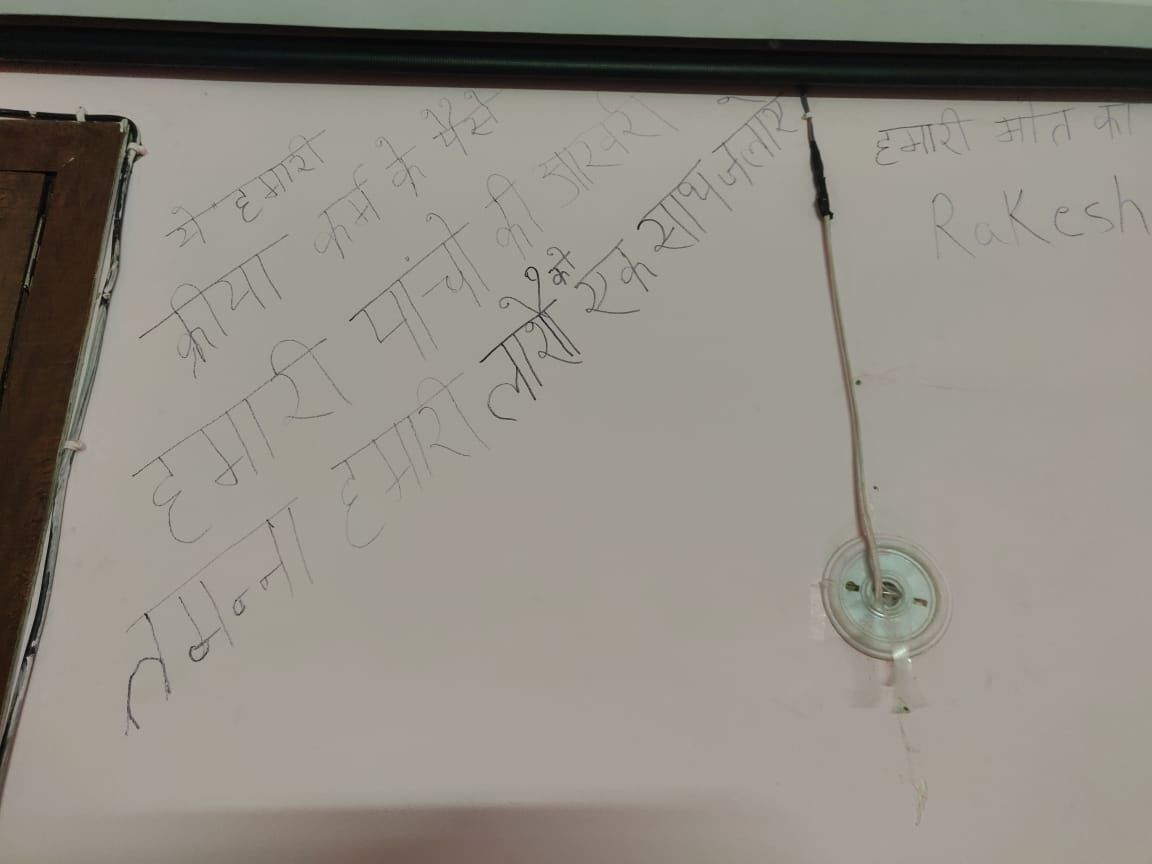 ये हमारी
क्रीया कर्म के पैसे
हमारी पांचो की आखरी
तमन्ना हमारी लाशो को एक साथ जलारे
हमारी मौत का
Rakesh